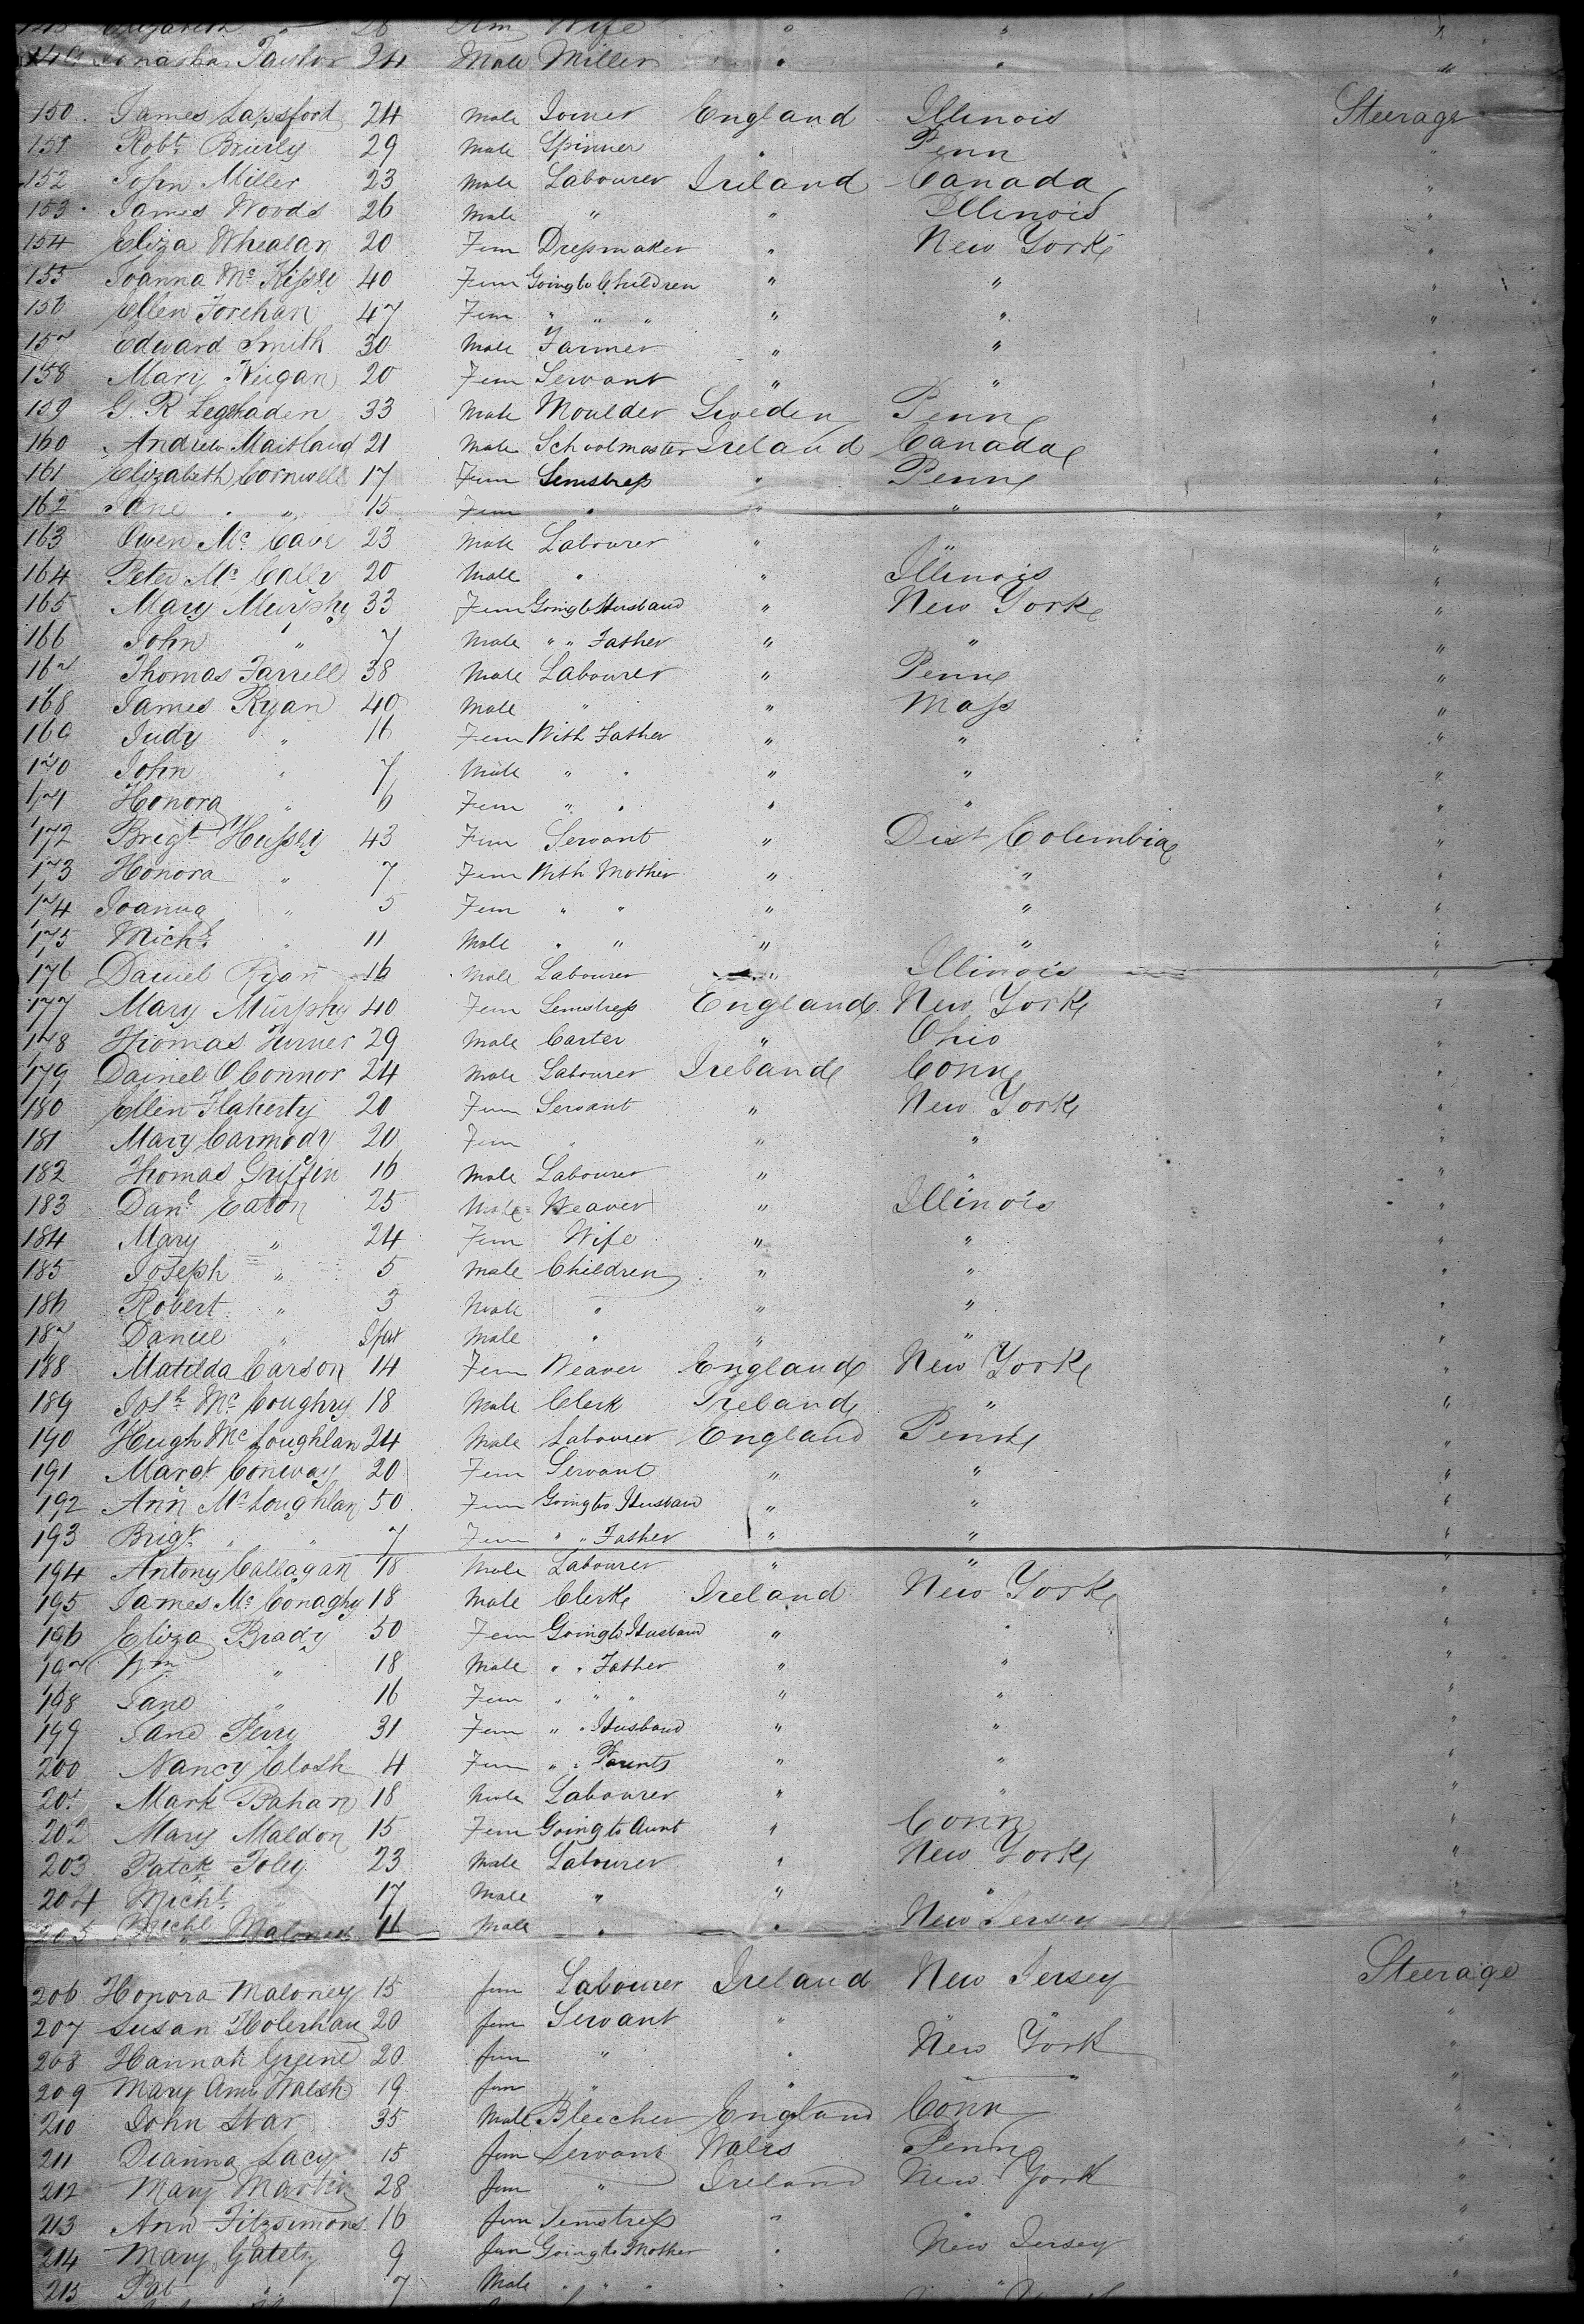 Elizabeth " 26 Fem Wife " " "
149 Jonathan Taylor 24 Male Miller " " "
150 James Lapsford 24 Male Joiner England Illinois Steerage
151 Robt Brierly 29 Male Spinner " Penn "
152 John Miller 23 Male Labourer Ireland Canada "
153 James Woods 26 Male " " Illinois "
154 Eliza Whealan 20 Fem Dressmaker " New York "
155 Joanna Mc 40 Fem Going to Children " " "
156 Ellen Forehan 47 Fem " " " " " "
157 Edward Smith 30 Male Farmer " " "
158 Mary Keigan 20 Fem Servant " " "
159 G. R. 33 Male Moulder Sweden Penn "
160 Andrew Maitland 21 Male Schoolmaster Ireland Canada "
161 Elizabeth Cornwell 17 Fem Semstress " Penn "
162 Jane " 15 Fem " " " "
163 Owen Mc Cave 23 Male Labourer " " "
164 Peter Mc Cally 20 Male " " Illinois "
165 Mary Murphy 33 Fem Going to Husband " New York "
166 John " 7 Male " " Father " " "
167 Thomas Farrell 38 Male Labourer " Penn "
168 James Ryan 40 Male " " Mass "
169 Judy " 16 Fem With Father " " "
170 John " 7 Male " " " " "
171 Honora " 6 Fem " " " " "
172 Brigt Hussey 43 Fem Servant " Dist Columbia "
173 Honora " 7 Fem With Mother " " "
174 Joanna " 5 Fem " " " " "
175 Michl " 11 Male " " " " "
176 Daniel Ryan 16 Male Labourer " Illinois "
177 Mary Murphy 40 Fem Semstress England New York "
178 Thomas Turner 29 Male Carter " Ohio "
179 Dainel O Connor 24 Male Labourer Ireland Conn "
180 Ellen Flaherty 20 Fem Servant " New York "
181 Mary Carmody 20 Fem " " " "
182 Thomas Griffin 16 Male Labourer " " "
183 Danl Eaton 25 Male Weaver " Illinois "
184 Mary " 24 Fem Wife " " "
185 Joseph " 5 Male Children " " "
186 Robert " 3 Male " " " "
187 Daniel " Infant Male " " " "
188 Matilda Carson 14 Fem Weaver England New York "
189 Josh Mc Coughry 18 Male Clerk Ireland " "
190 Hugh Mc Loughlan 24 Male Labourer England Penn "
191 Margt Conway 20 Fem Servant " " "
192 Ann Mc Loughlan 50 Fem Going to Husband " " "
193 Brigt " " 7 Fem " " Father " " "
194 Antony Callagan 18 Male Labourer " " "
195 James Mc Conaghy 18 Male Clerk Ireland New York "
196 Eliza Brady 50 Fem Going to Husband " " "
197 Wm " 18 Male " " Father " " "
198 Jane " 16 Fem " " " " " "
199 Jane Perry 31 Fem " " Husband " " "
200 Nancy Closh 4 Fem " " Parents " " "
201 Mark Bahan 18 Male Labourer " " "
202 Mary Maldon 15 Fem Going to Aunt " Conn "
203 Patck Foley 23 Male Labourer " New York "
204 Michl " 17 Male " " " "
205 Michl Maloney 11 Male " " New Jersey
206 Honora Maloney 15 fem Labourer Ireland New Jersey Steerage
207 Susan Holerhan 20 fem Servant " " "
208 Hannah Greene 20 fem " " New York "
209 Mary Ann Walsh 19 fem " " " "
210 John Star 35 Male Bleecher England Conn "
211 Deanna Lacy 15 fem Servant Wales Penn "
212 Mary Martin 28 fem " Ireland New York "
213 Ann Fitzsimons 16 fem Semstress " " "
214 Mary Gately 9 fem Going to Mother " New Jersey "
215 Pat " 7 Male " " " " " "